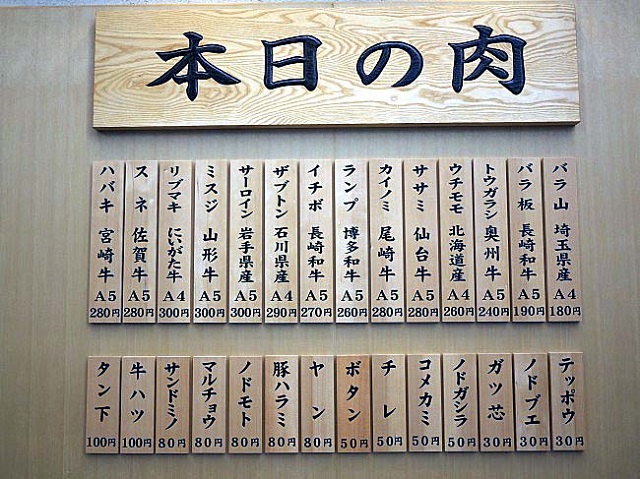 本日の肉
バラ山 埼玉県産 A4 180円
バラ板 長崎和牛 A5 190円
トウガラシ 奥州牛 A5 240円
ウチモモ 北海道産 A4 260円
ササミ 仙台牛 A5 280円
カイノミ 尾崎牛 A5 280円
ランプ 博多和牛 A5 260円
イチボ 長崎和牛 A5 270円
ザブトン 石川県産 A4 290円
サーロイン 岩手県産 A5 300円
ミスジ 山形牛 A5 300円
リブマキ にいがた牛 A4 300円
スネ 佐賀牛 A5 280円
ハバキ 宮崎牛 A5 280円
テッポウ 30円
ノドブエ 30円
ガツ芯 30円
ノドガシラ 50円
コメカミ 50円
チレ 50円
ボタン 50円
ヤン 80円
豚ハラミ 80円
ノドモト 80円
マルチョウ 80円
サンドミノ 80円
牛ハツ 100円
タン下 100円